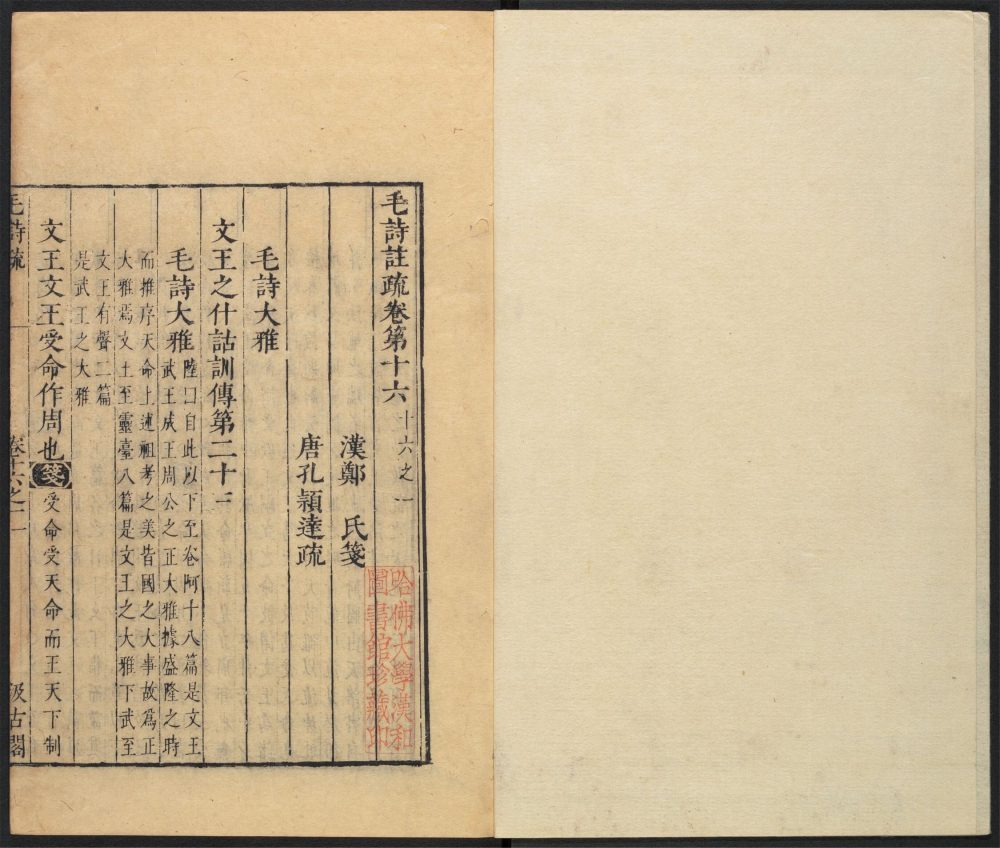 毛詩註疏卷第十六 十六之一
漢鄭 氏箋
唐孔穎達疏
毛詩大雅
文王之什詁訓傳第二十三
毛詩大雅 陸曰自此以下至卷阿十八篇是文王
武王成王周公之正大雅據盛隆之時
而推序天命上述祖考之美皆國之大事故為正
大雅焉文王至靈臺八篇是文王之大雅下武至
文王有聲二篇
是武王之大雅
文王文王受命作周也箋受命受天命而王天下制
毛詩疏 卷十六之一 汲古閣
哈佛大學漢和
圖書館珍藏印